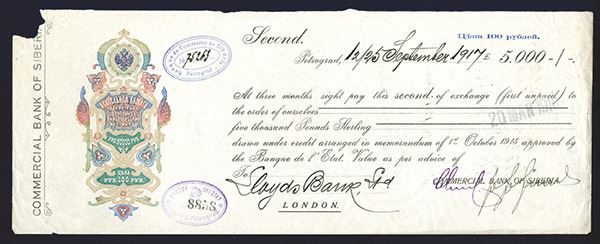 COMMERCIAL BANK OF SIBERIA
Second.
Цѣна 100 рублей.
Petrograd, 12/25 September 1917 £ 5.000-/-
At three months sight pay this second of exchange (first unpaid) to
the order of ourselves
five thousand Pounds Sterling
drawn under credit arranged in memorandum of 1st October 1915 approved by
the Banque de l'Etat. Value as per advice of
To
Lloyds Bank Ltd
LONDON.
COMMERCIAL BANK OF SIBERIA
de Commerce de
Petrograd
8858
РУБ. 100 РУБ.